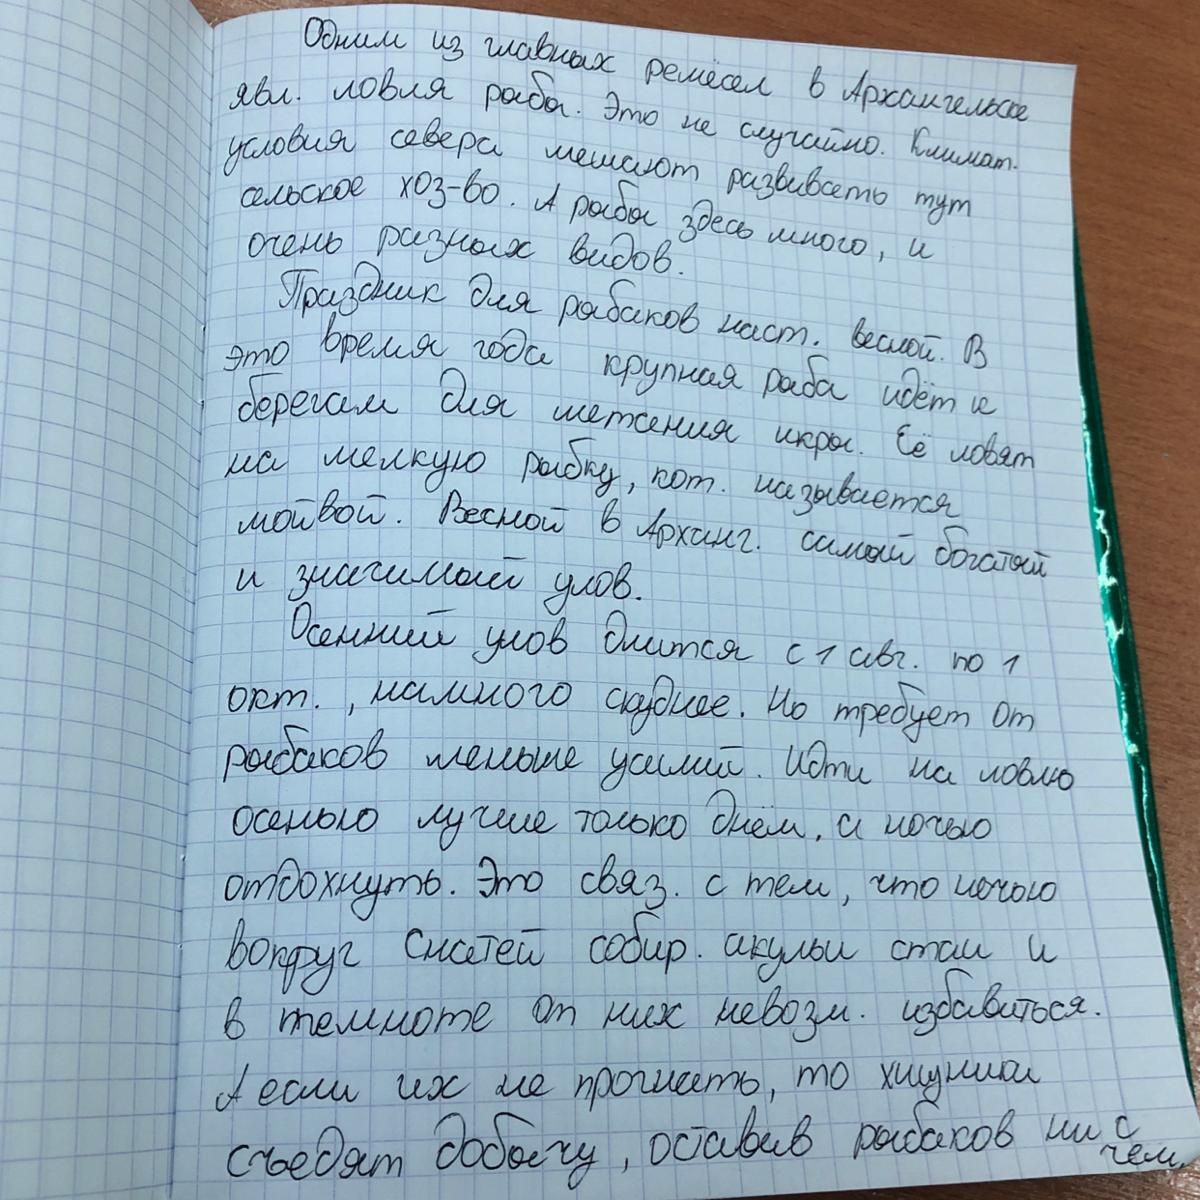 Одним из главных ремёсел в Архангельске
явл. ловля рыбы. Это не случайно. Климат.
условия севера мешают развивать тут
сельское хоз-во. А рыбы здесь много, и
очень разных видов.
Праздник для рыбаков наст. весной. В
это время года крупная рыба идёт к
берегам для метания икры. Её ловят
на мелкую рыбку, кот. называется
мойвой. Весной в Арханг. самый богатый
и значимый улов.
Осенний улов длится с 1 авг. по 1
окт., намного скуднее. Но требует от
рыбаков меньше усилий. Идти на ловлю
осенью лучше только днём, а ночью
отдохнуть. Это связ. с тем, что ночью
вокруг снастей собир. акульи стаи и
в темноте от них невозм. избавиться.
А если их не прогнать, то хищники
съедят добычу, оставив рыбаков ни с
чем.